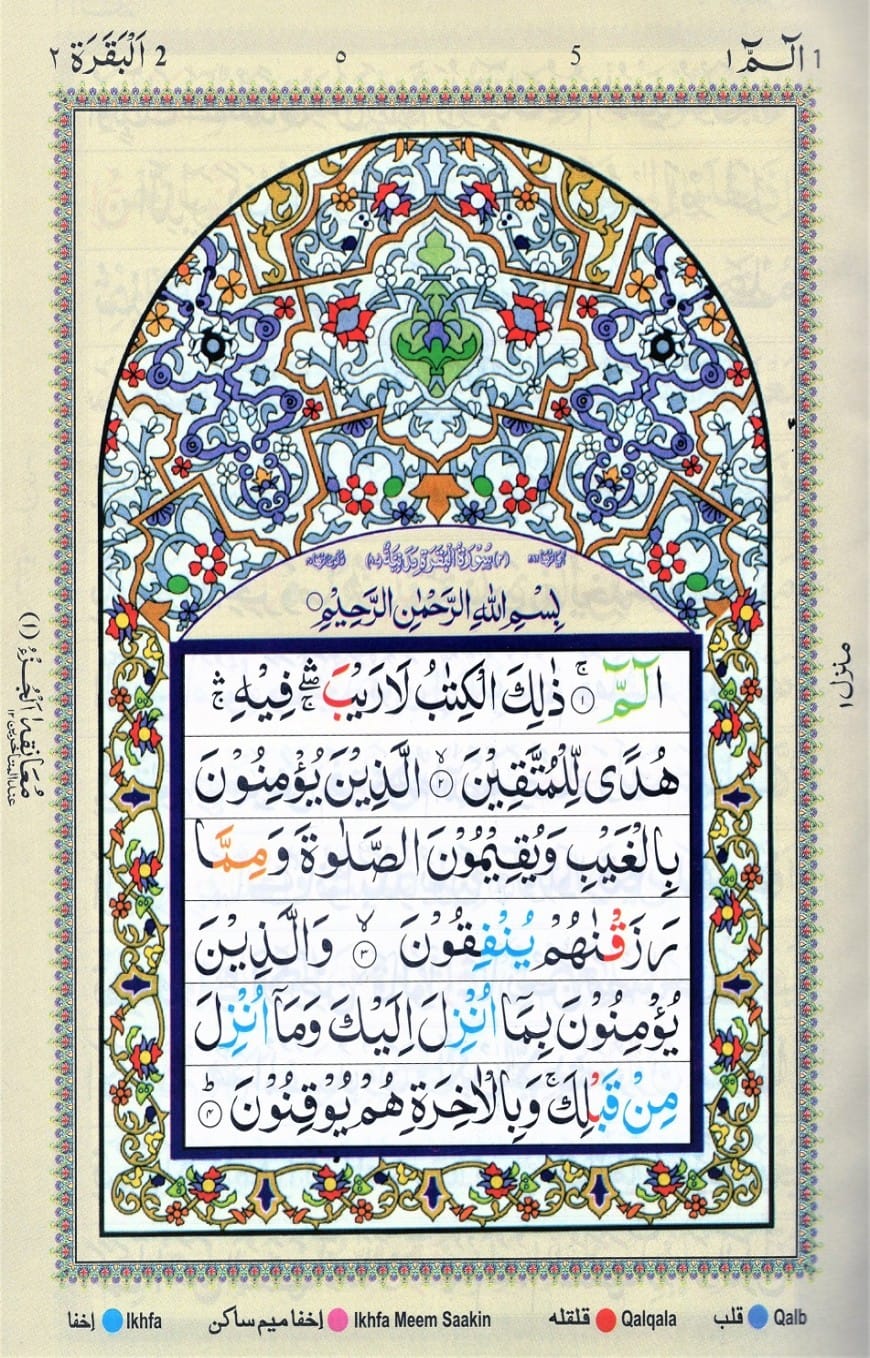 1 الٓـمّٓ ١ 5 ٥ 2 اَلْبَقَرَة ٢
سُوْرَةُ الْبَقَرَةِ مَدَنِيَّةٌ
بِسْمِ اللّٰهِ الرَّحْمٰنِ الرَّحِيْمِ
الٓمّٓ ۚ ۱ ذٰلِكَ الْكِتٰبُ لَا رَيْبَ ۛۖۚ فِيْهِ ۛۚ
هُدًى لِّلْمُتَّقِيْنَ ۙ ۲ الَّذِيْنَ يُؤْمِنُوْنَ
بِالْغَيْبِ وَيُقِيْمُوْنَ الصَّلٰوةَ وَمِمَّا
رَزَقْنٰهُمْ يُنْفِقُوْنَ ۙ ۳ وَالَّذِيْنَ
يُؤْمِنُوْنَ بِمَآ اُنْزِلَ اِلَيْكَ وَمَآ اُنْزِلَ
مِنْ قَبْلِكَ ۚ وَبِالْاٰخِرَةِ هُمْ يُوْقِنُوْنَ ؕ ۴
منزل ١
مُعَانقه ١ الْجُزْءُ (١)
عند المتأخرين ١٢
Qalb قلب Qalqala قلقله Ikhfa Meem Saakin إخفا ميم ساكن Ikhfa إخفا